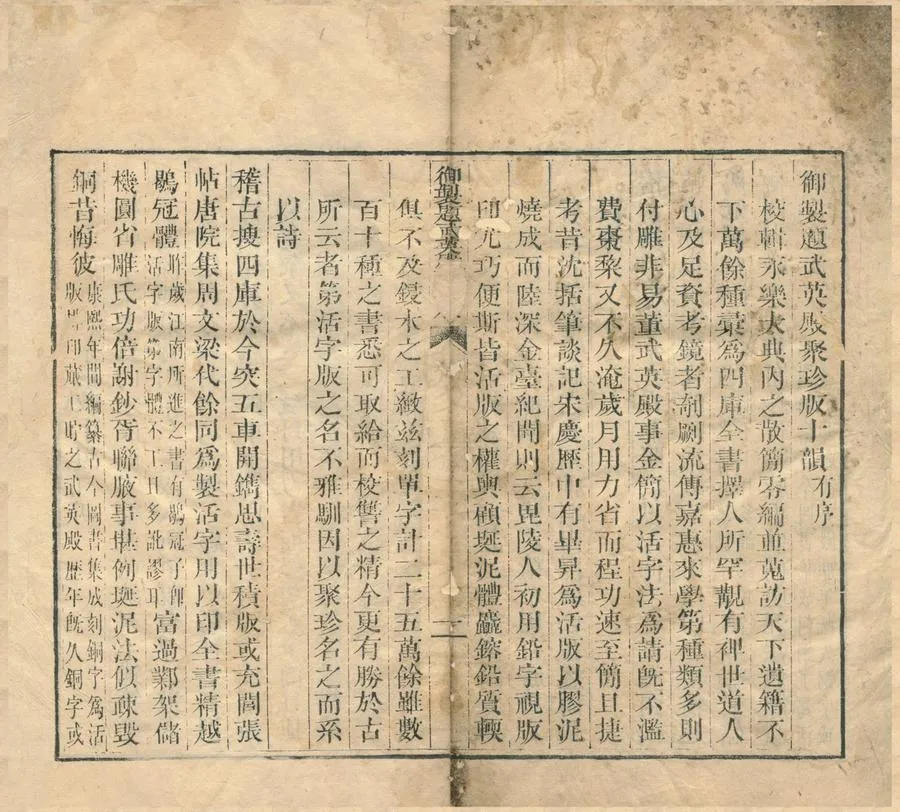 御製題武英殿聚珍版十韻有序
校輯永樂大典內之散簡零編並蒐訪天下遺籍不
下萬餘種彙爲四庫全書擇人所罕覯有裨世道人
心及足資考鏡者剞劂流傳嘉惠來學第種類多則
付雕非易董武英殿事金簡以活字法爲請旣不濫
費棗黎又不久淹歲月用力省而程功速至簡且捷
考昔沈括筆談記宋慶歷中有畢昇爲活版以膠泥
燒成而陸深金臺紀聞則云毘陵人初用鉛字視版
印尤巧便斯皆活版之權輿顧埏泥體麤鎔鉛質輭
御製題武英殿 一
俱不及鋟木之工緻茲刻單字計二十五萬餘雖數
百十種之書悉可取給而校讐之精今更有勝於古
所云者第活字版之名不雅馴因以聚珍名之而系
以詩
稽古搜四庫於今突五車開鐫思壽世積版或充閭張
帖唐院集周文梁代餘同爲製活字用以印全書精越
鶡冠體昨歲江南所進之書有鶡冠子卽活字版第字體不工且多訛謬耳富過鄴架儲
機圓省雕氏功倍謝鈔胥聯腋事堪例埏泥法似疎毀
銅昔悔彼康熙年間編纂古今圖書集成刻銅字爲活版排印蕆工貯之武英殿歷年旣久銅字或